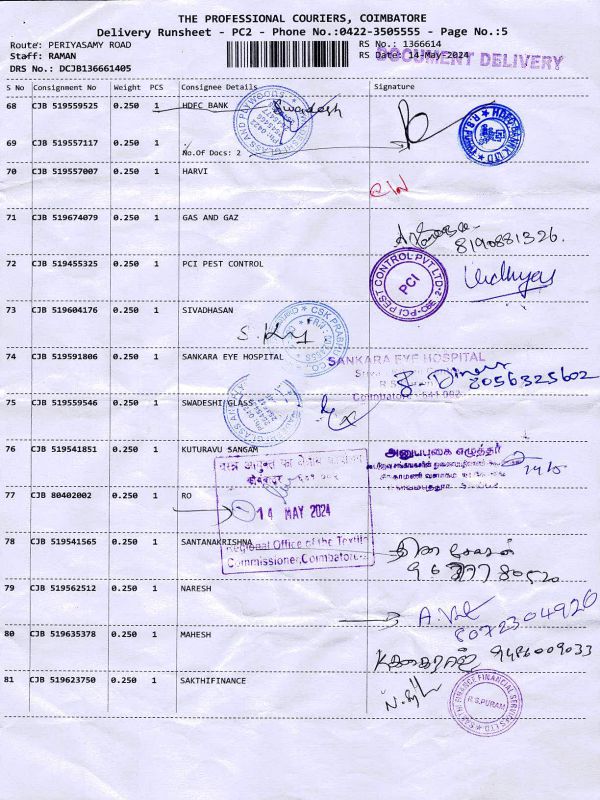 THE PROFESSIONAL COURIERS, COIMBATORE
Delivery Runsheet - PC2 - Phone No.:0422-3505555 - Page No.:5
Route: PERIYASAMY ROAD RS No.: 1366614
Staff: RAMAN RS Date: 14-May-2024
DOCUMENT DELIVERY
DRS No.: DCJB136661405
S No Consignment No Weight PCS Consignee Details Signature
68 CJB 519559525 0.250 1 HDFC BANK Swadesh
69 CJB 519557117 0.250 1
No.Of Docs: 2
HDFC BANK LTD
R.S. PURAM
70 CJB 519557007 0.250 1 HARVI
71 CJB 519674079 0.250 1 GAS AND GAZ
8190881326.
72 CJB 519455325 0.250 1 PCI PEST CONTROL
PCI PEST CONTROL PVT LTD
PCI
Vidhya
73 CJB 519604176 0.250 1 SIVADHASAN
74 CJB 519591806 0.250 1 SANKARA EYE HOSPITAL
SANKARA EYE HOSPITAL
Coimbatore - 641 002
8056325602
75 CJB 519559546 0.250 1 SWADESHI GLASS
76 CJB 519541851 0.250 1 KUTURAVU SANGAM
அனுபபுகை எழுத்தர்
77 CJB 80402002 0.250 1 RO
14 MAY 2024
Regional Office of the Textile
Commissioner, Coimbatore-2
78 CJB 519541565 0.250 1 SANTANAKRISHNA
79 CJB 519562512 0.250 1 NARESH
8072304926
80 CJB 519635378 0.250 1 MAHESH
9486009033
81 CJB 519623750 0.250 1 SAKTHIFINANCE
SAKTHI FINANCE FINANCIAL SERVICES LTD
R.S.PURAM